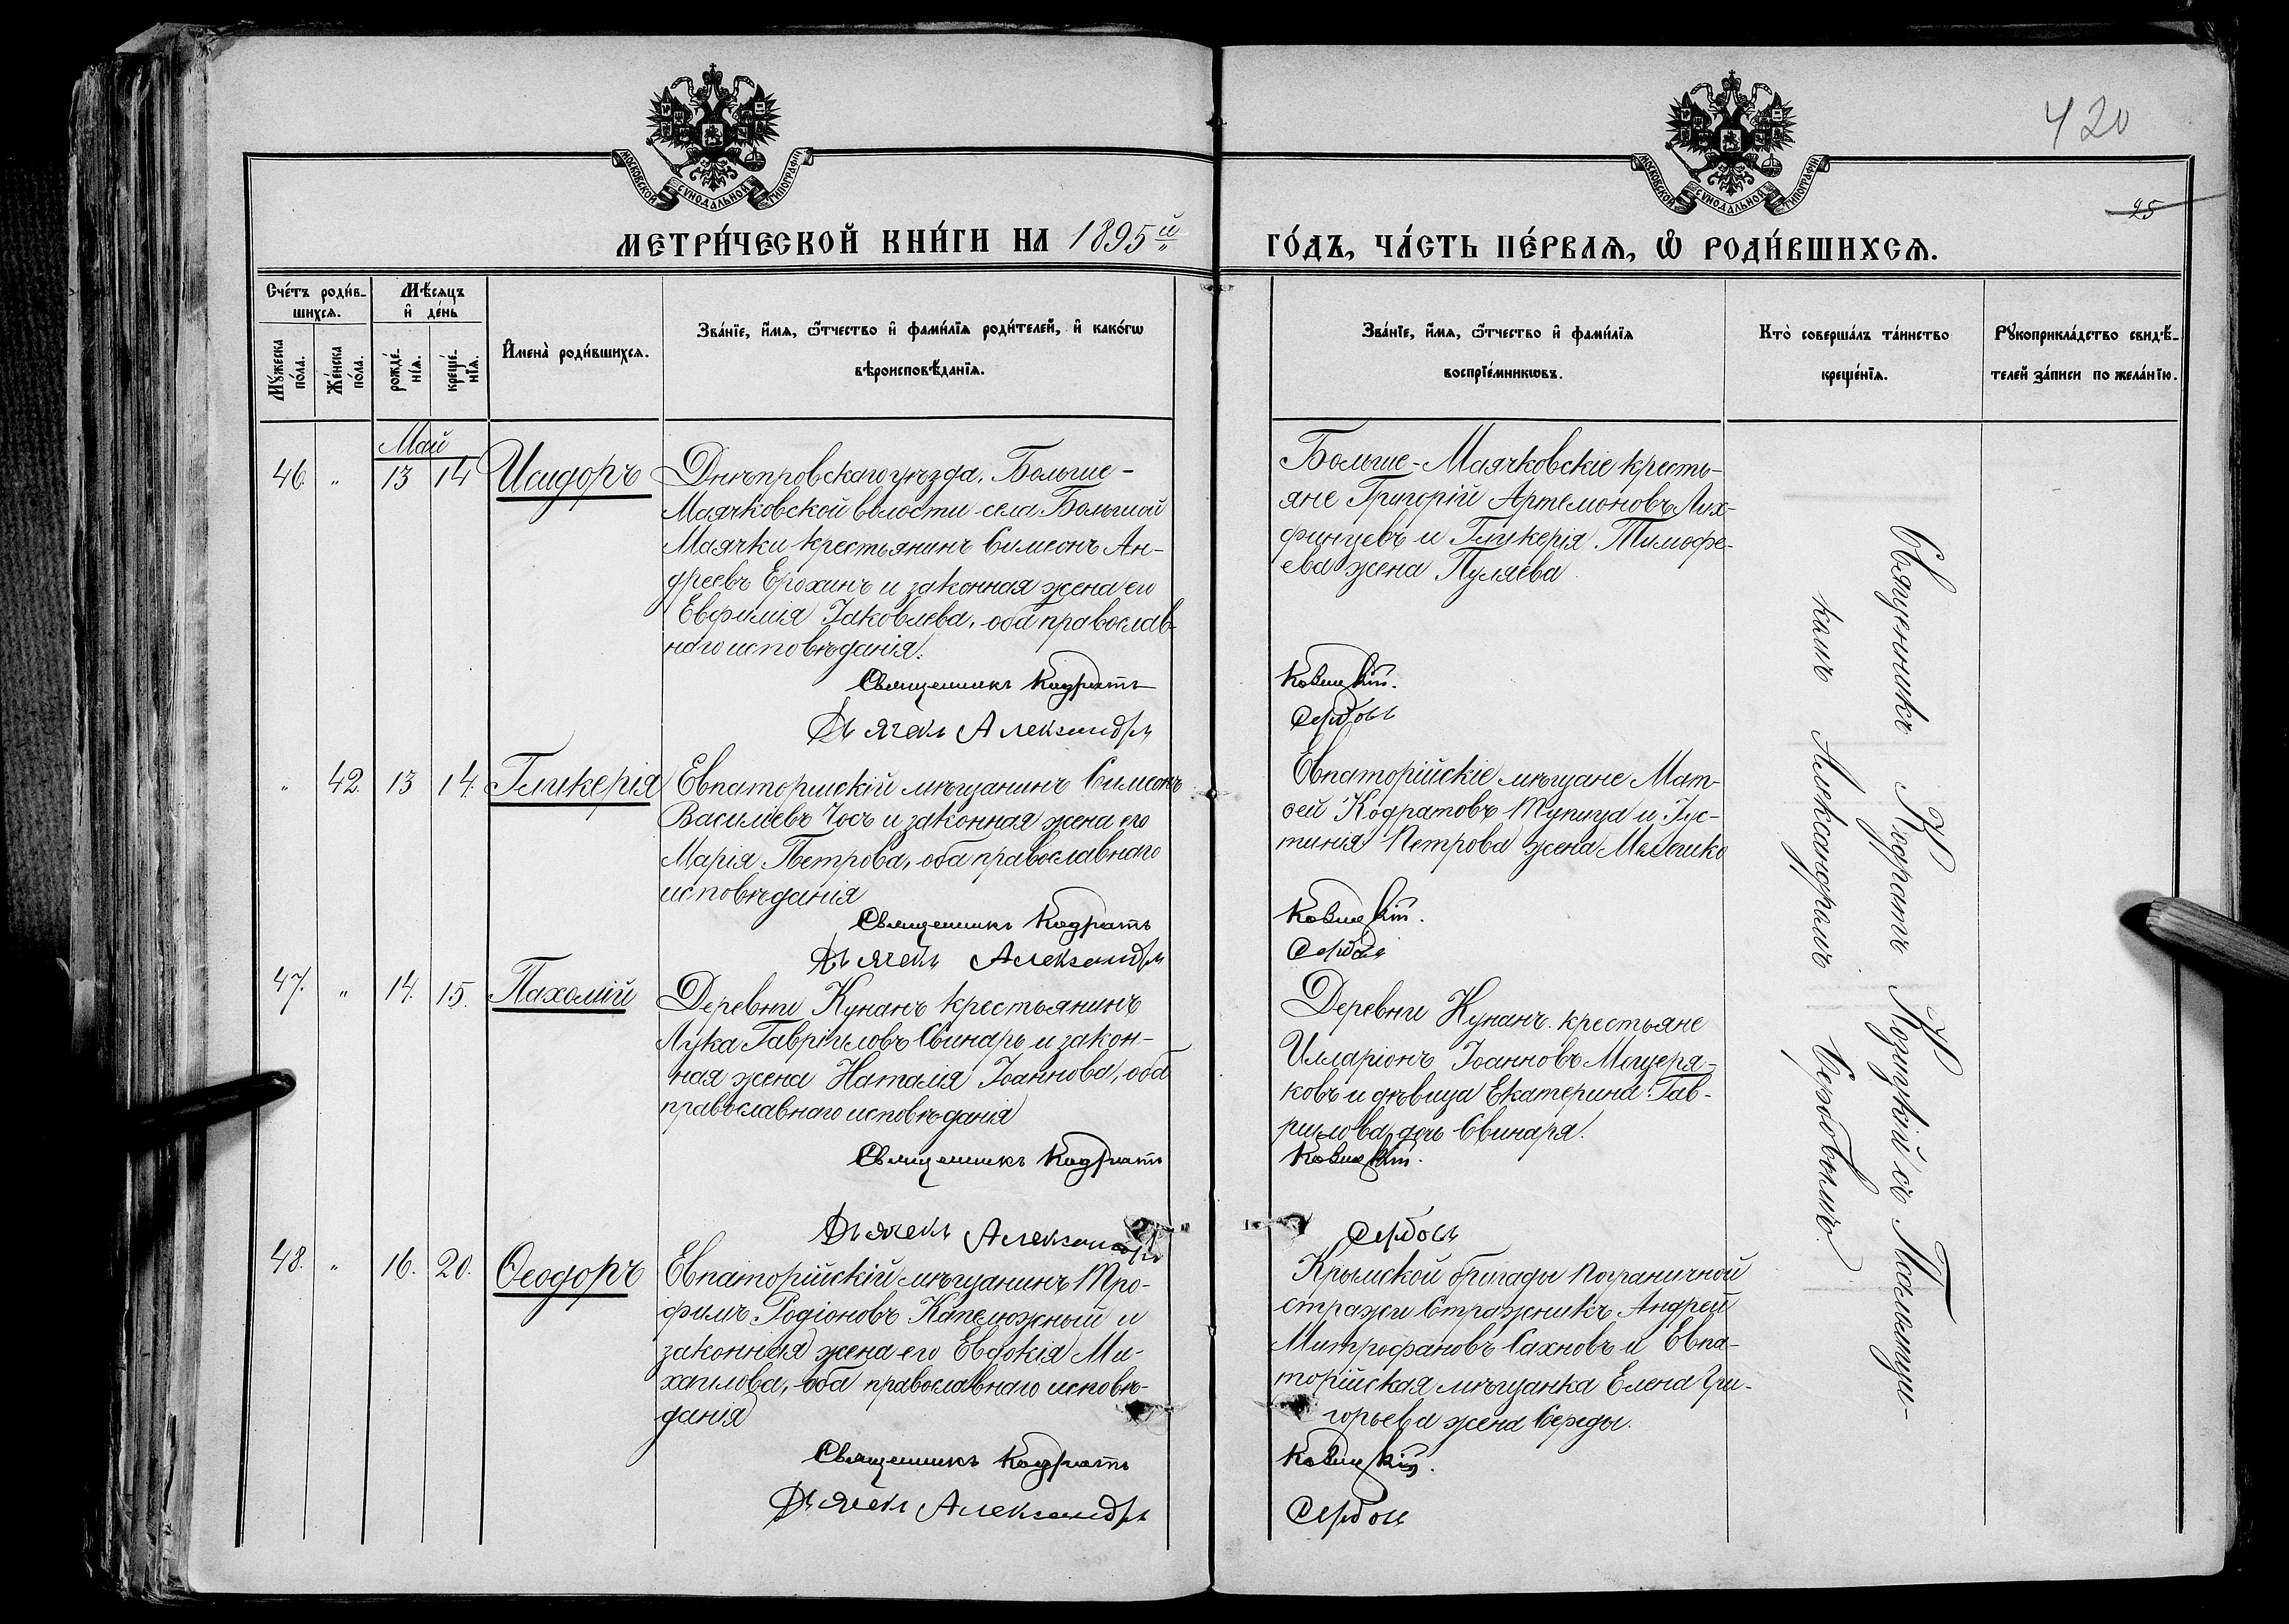 420
25
МОСКОВСКОЙ СѴНОДАЛЬНОЙ ТИПОГРАФІИ
МОСКОВСКОЙ СѴНОДАЛЬНОЙ ТИПОГРАФІИ
МЕТРИ́ЧЕСКОЙ КНИ́ГИ НА 1895й
ГО́ДЪ, ЧА́СТЬ ПЕ́РВАѦ, Ѡ҆ РОДИ́ВШИХСѦ.
Сче́тъ роди́в-
шихсѧ.
Мꙋ́жеска по́ла.
Же́нска по́ла.
Мѣ́сѧцъ
и҆ де́нь
рожде́-
нїѧ.
креще́-
нїѧ.
И҆мена̀ роди́вшихсѧ.
Зва́нїе, и҆́мѧ, ѻ҆́тчество и҆ фами́лїѧ роди́телей, и҆ како́гѡ
вѣроисповѣ́данїѧ.
Зва́нїе, и҆́мѧ, ѻ҆́тчество и҆ фами́лїѧ
воспрїе́мникѡвъ.
Кто̀ соверша́лъ та́инство
креще́нїѧ.
Рꙋкоприкла́дство свидѣ́-
телей за́писи по жела́нїю.
Май
46. " 13 14 Исидоръ
Днѣпровскаго уѣзда, Больше-
Маячковской волости села Большой
Маячки крестьянинъ Симеонъ Ан-
дреевъ Ерохинъ и законная жена его
Евфимія Іаковлева, оба православ-
наго исповѣданія.
Священникъ Кодратъ
Дьячекъ Александръ
Больше-Маячковскіе кресть-
яне Григорій Артемоновъ
и Гликерія Тимофе-
ева жена Пуляева
Сербовъ
" 42. 13 14. Гликерія
Евпаторійскій мѣщанинъ Симеонъ
Василіевъ Чосъ и законная жена его
Марія Петрова, оба православнаго
исповѣданія
Священникъ Кодратъ
Дьячекъ Александръ
Евпаторійскіе мѣщане Мат-
ѳей Кодратовъ Тупица и Іус-
тинія Петрова жена Мелешко
Сербовъ
47. " 14. 15. Пахомій
Деревни Кунанъ крестьянинъ
Лука Гавріиловъ Свинарь и закон-
ная жена Наталія Іоаннова, оба
православнаго исповѣданія
Священникъ Кодратъ
Дьячекъ Александръ
Деревни Кунанъ крестьяне
Илларіонъ Іоанновъ Мещеря-
ковъ и дѣвица Екатерина Гав-
риилова дочь Свинаря.
Сербовъ
48. " 16. 20. Ѳеодоръ
Евпаторійскій мѣщанинъ Тро-
фимъ Родіоновъ Капелюжный и
законная жена его Евдокія Ми-
хаилова, оба православнаго исповѣ-
данія
Священникъ Кодратъ
Дьячекъ Александръ
Крымской бригады Пограничной
стражи Стражникъ Андрей
Митрофановъ Сахновъ и Евпа-
торійская мѣщанка Елена Гри-
горьева жена Середы.
Сербовъ
Священникъ Кодратъ съ Псаломщи-
комъ Александромъ Сербовымъ.